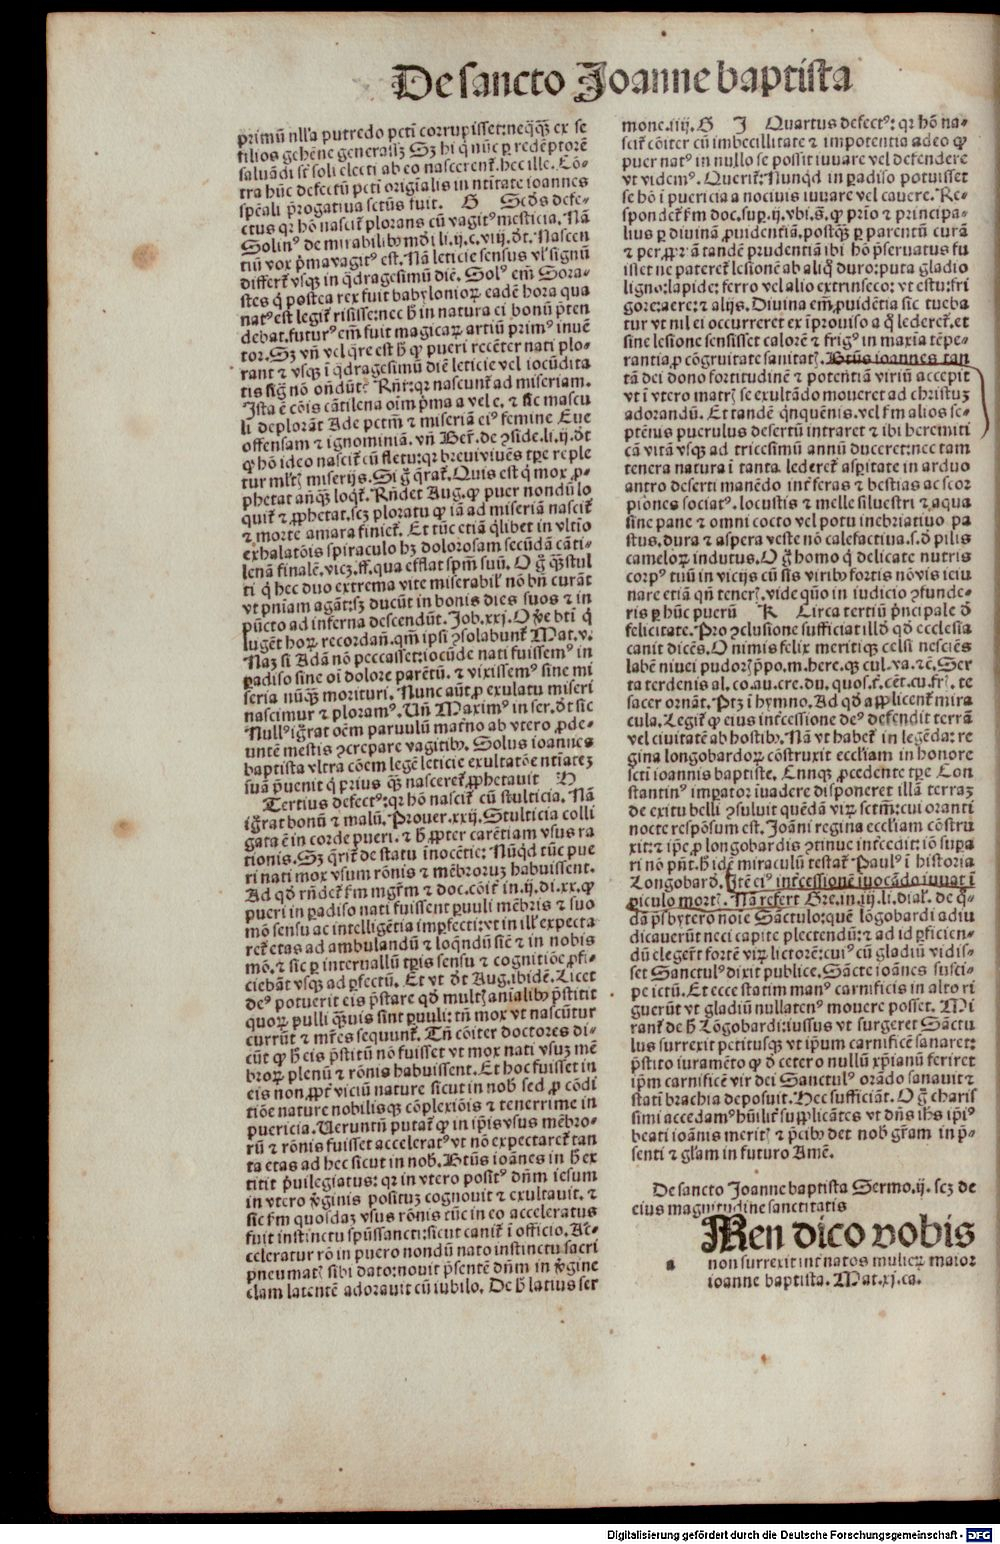 De sancto Joanne baptista
primū nll'a putredo pctī corrupisset: neq̄q̄ ex se
filios gehēne generass3 S3 hi q̄ nūc ꝑ redēptorē
saluādi sūt soli electi ab eo nascerent̄. hec ille. Cō-
tra hūc defectū pctī origīalis in nt̄itate ioannes
spēali p̄rogatiua sctūs fuit. G Scd̄s defe-
ctus qr hō nascit̄ plorans cū vagitꝰ mesticia. Nā
Solinꝰ de mirabilibꝰ mūdi li. ij. c. viij. dt̄. Nascen
tiū vox p̄ma vagitꝰ est. Nā leticie sensus vl' signū
differt̄ vsq̄ in q̄dragesimū diē. Solꝰ em̄ Soroa-
stes q̄ postea rex fuit babylonioꝝ eadē hora qua
natꝰ est legit̄ risisse: nec h̄ in natura ei bonū p̄ten
debat. futurꝰ em̄ fuit magicaꝝ artiū primꝰ inuē
tor. S3 vn̄ vel q̄re est h̄ ꝙ pueri recēter nati plo-
rant ⁊ vsq̄ ī q̄dragesimū diē leticie vel iocūdita
tis siḡ nō on̄dūt. Rn̄r: qr nascunt̄ ad miseriam.
Ista ē cōis cātilena oīm p̄ma a vel e. ⁊ sic mascu
li deplorāt Ade pctm̄ ⁊ miseriā eiꝰ femine Eue
offensam ⁊ ignominiā. vn̄ Ber̄. de ꝯside. li. ij. dt̄
ꝙ hō ideo nascit̄ cū fletu: qr breui viuēs tꝑe reple
tur mlt̄is miserijs. Si ḡ q̄rat̄. Quis est q̄ mox ꝓ-
phetat anq̄ꝫ loqt̄. Rn̄det Aug. ꝙ puer nondū lo
quit̄ ⁊ ꝓphetat. sc3 ploratu ꝙ iā ad miseriā nascit̄
⁊ morte amara finiet̄. Et tūc etiā q̄libet in vltīo
exhalatōis spiraculo h3 dolorosam secūdā cāti-
lenā finalē. vic3. ff. qua efflat spm̄ suū. O ḡ q̄ꝫ stul
ti q̄ hec duo extrema vite miserabil' nō bn̄ curāt
vt pniam agāt: s3 ducūt in bonis dies suos ⁊ in
pūcto ad inferna descendūt. Job. xxj. O v̄e bti q̄
lugēt hoꝝ recordan̄. qm̄ ipsi ꝯsolabunt̄ Mat. v.
Na3 si Adā nō peccasset: iocūde nati fuissemꝰ in
ꝑadiso sine oī dolore parētū. ⁊ vixissemꝰ sine mi
seria nūq̄ꝫ morituri. Nunc aūt ꝓ exulatu miseri
nascimur ⁊ ploramꝰ. Un̄ Maximꝰ in ser. dt̄ sic
Nullꝰ ig̃rat oēm paruulū mat̄no ab vtero ꝓde-
untē mestis ꝯcrepare vagitibꝰ. Solus ioannes
baptista vltra cōem legē leticie exultatōe nt̄iate3
suā p̄uenit q̄ prius q̄ꝫ nasceret̄ ꝓphetauit H
Tertius defectꝰ: qr hō nascit̄ cū stulticia. Nā
ig̃rat bonū ⁊ malū. Prouer. xxij. Stulticia colli
gata ē in corde pueri. ⁊ h̄ ꝓpter carētiam vsus ra
tionis. S3 q̄rit̄ de statu inocētie: Nūqd̄ tūc pue
ri nati mox vsum rōnis ⁊ mēbroru3 habuissent.
Ad qd̄ rn̄det̄ ẜm mgr̄m ⁊ doc. cōit̄ in. ij. di. xx. ꝙ
pueri in ꝑadiso nati fuissent ꝑuuli mēbris ⁊ suo
mō sensu ac intelligētia imꝑfecti: vt in ill' expecta
ret̄ etas ad ambulandū ⁊ loq̄ndū sicē ⁊ in nobis
mō. ⁊ sic ꝑ interuallū tꝑis sensu ⁊ cognitiōe ꝓfi-
ciebāt vsq̄ ad ꝑfectū. Et vt dt̄ Aug. ibidē. Licet
deꝰ potuerit eis p̄stare qd̄ mult̄ anialibꝰ p̄stitit
quoꝝ pulli q̄ꝫuis sint ꝑuuli: tn̄ mox vt nascūtur
currūt ⁊ mr̄es sequunt̄. Tn̄ cōiter doctores di-
cūt ꝙ h̄ eis p̄stitū nō fuisset vt mox nati vsu3 mē
broꝝ plenū ⁊ rōnis habuissent. Et hoc fuisset in
eis non ꝓpt̄ viciū nature sicut in nob̄ sed ꝓ cōdi
tiōe nature nobilisq̄ cōplexiōis ⁊ tenerrime in
puericia. Ueruntn̄ putat̄ ꝙ in ip̄is vsus mēbro-
rū ⁊ rōnis fuisset acceleratꝰ vt nō expectaret̄ tan
ta etas ad hec sicut in nob̄. Btūs ioānes in h̄ ex
titit p̄uilegiatus: qr in vtero positꝰ dn̄m iesum
in vtero v̄ginis positu3 cognouit ⁊ exultauit. ⁊
sic ẜm quosda3 vsus rōnis tūc in eo acceleratus
fuit instinctu spūssancti: sicut canit̄ ī officio. Ac-
celeratur rō in puero nondū nato instinctu sacri
pneumat̄ sibi dato: nouit p̄sentē dn̄m in v̄gine
clam latentē adorauit cū iubilo. De h̄ latius ser
mone. iiij. G J Quartus defectꝰ: qr hō na-
scit̄ cōiter cū imbecillitate ⁊ impotentia adeo ꝙ
puer natꝰ in nullo se possit iuuare vel defendere
vt videmꝰ. Querit̄: Nunqd̄ in ꝑadiso potuisset
se hō ī puericia a nociuis iuuare vel cauere. Re-
spondet̄ ẜm doc. suꝑ. ij. vbi. s̄. ꝙ prīo ⁊ principa-
lius ꝑ diuinā ꝓuidentiā. postq̄ꝫ ꝑ parentū curā
⁊ per ꝓpriā tandē prudentiā ibi hō p̄seruatus fu
isset ne pateret̄ lesionē ab aliq̄ duro: puta gladio
ligno: lapide: ferro vel alio extrinseco: vt estu: fri
gore: aere: ⁊ alijs. Diuina em̄ ꝓuidētia sic tueba
tur vt nil ei occurreret ex īprouiso a q̄ lederet̄. et
sine lesione sensisset calorē ⁊ frigꝰ in maxīa tēpe-
rantia ꝓ cōgruitate sanitat̄. Btūs ioannes tan
tā dei dono fortitudinē ⁊ potentiā viriū accepit
vt ī vtero matr̄ se exultādo moueret ad christu3
adorandū. Et tandē qnquēnis. vel ẜm alios se-
ptēnis puerulus desertū intraret ⁊ ibi heremiti
cā vitā vsq̄ ad tricesimū annū duceret: nec tam
tenera natura ī tanta lederet̄ asꝑitate in arduo
antro deserti manēdo int̄ feras ⁊ bestias ac scor
piōnes sociatꝰ. locustis ⁊ melle siluestri ⁊ aqua
sine pane ⁊ omni cocto vel potu inebriatiuo pa
stus. dura ⁊ aspera veste nō calefactiua. s. d̄ pilis
cameloꝝ indutus. O ḡ homo q̄ delicate nutris
corpꝰ tuū in vicijs cū sis viribꝰ fortis nō vis ieiu
nare etiā qn̄ tener̄. vide quō in iudicio ꝯfunde-
ris ꝑ hūc puerū K Circa tertiū p̄ncipale d̄
felicitate. Pro ꝯclusione sufficiat illd̄ qd̄ ecclesia
canit dicēs. O nimis felix meritiq̄ celsi nesciēs
labē niuei pudor̄ p̄po. m. here. q̄ cul. va. ⁊c̄. Ser
ta terdenis al. co. au. cre. du. quos. f̄. cēt. cu. fr̄. te
sacer ornāt. Pt3 ī hymno. Ad qd̄ applicent̄ mira
cula. Legit̄ ꝙ eius int̄cessione deꝰ defendit terrā
vel ciuitatē ab hostibꝰ. Nā vt habet̄ in legēda: re
gina longobardoꝝ cōstruxit eccl'iam in honore
scti ioannis baptiste. Cunq3 ꝓcedente tꝑe Con
stantinꝰ imꝑator īuadere disponeret illā terra3
de exitu belli ꝯsuluit quēdā viꝝ sctm̄: cui oranti
nocte respōsum est. Joāni regina eccl'iam cōstru
xit: ⁊ ip̄e ꝓ longobardis ꝯtinue int̄cedit: iō supa
ri nō pn̄t. h̄ idē miraculū testat̄ Paulꝰ ī historia
Longobard̄. Itē eiꝰ int̄cessionē īuocādo iuuat ī
ꝑiculo mort̄. Nā refert Gre. in. iij. li. dial'. de q̄-
dā p̄sbytero noīe Sāctulo: quē lōgobardi adiu
dicauerūt neci capite plectendū: ⁊ ad id ꝑficien-
dū elegerūt fortē viꝝ lictorē: cuiꝰ cū gladiū vidis-
set Sanctulꝰ dixit publice. Sācte ioānes susci-
pe ictū. Et ecce statim manꝰ carnificis in alto ri
guerūt vt gladiū nullatenꝰ mouere posset. Mi
rant̄ de h̄ Lōgobardi: iussus vt surgeret Sāctu
lus surrexit petitusq̄ vt ip̄um carnificē sanaret:
p̄stito iuramēto ꝙ d̄ cetero nullū xp̄ianū feriret
ip̄m carnificē vir dei Sanctulꝰ orādo sanauit ⁊
stati brachia deposuit. Hec sufficiāt. O ḡ charis
simi accedamꝰ hūilit̄ supplicātes vt dn̄s ih̄s ip̄iꝰ
beati ioānis merit̄ ⁊ p̄cibꝰ det nob̄ gr̄am in p̄-
senti ⁊ gl'am in futuro Amē.
De sancto Joanne baptista Sermo. ij. sc3 de
eius magnitudine sanctitatis
Amen dico vobis
a non surrexit int̄ natos mulieꝝ maior
ioanne baptista. Mat. xj. ca.
Digitalisierung gefördert durch die Deutsche Forschungsgemeinschaft - DFG